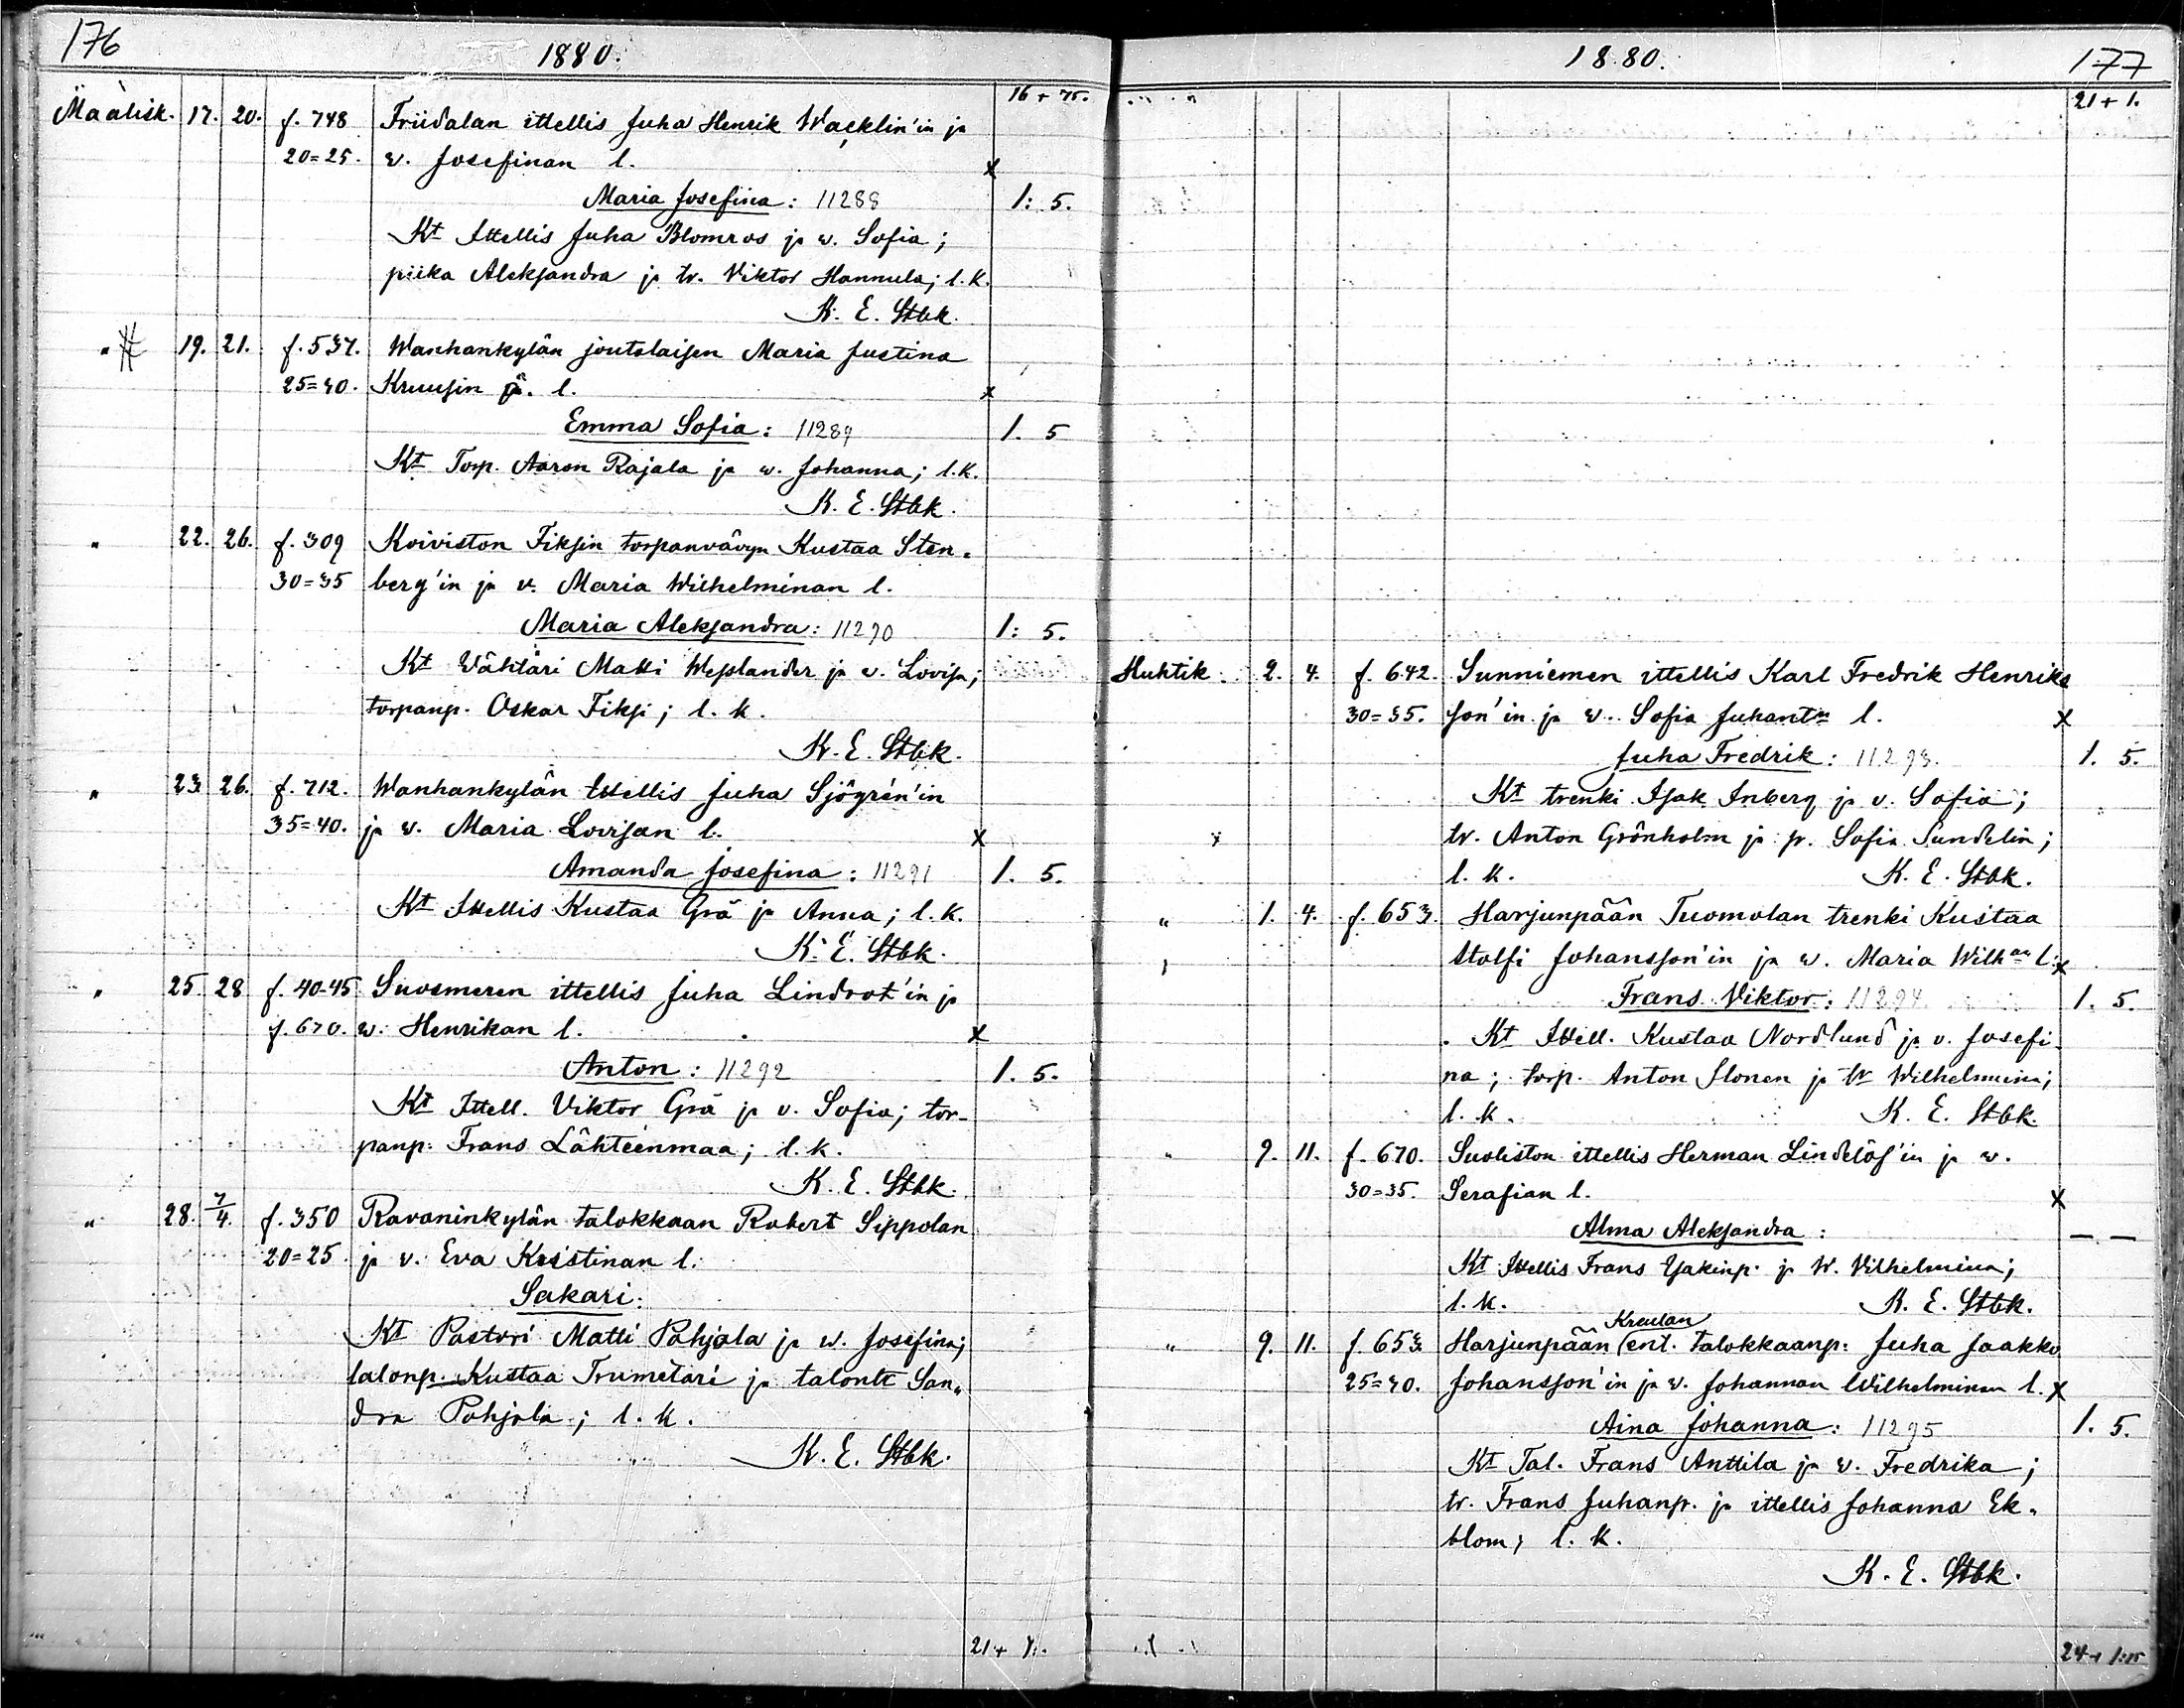 176
1880.
16 + 75.
Maalisk. 17. 20. f. 748 Friidalan ittellis Juha Henrik Wacklin'in ja
20=25. w. Josefinan l. x
Maria Josefina: 11288 1: 5.
Kt Ittellis Juha Blomros ja w. Sofia;
piika Aleksandra ja tr. Viktor Hannula; l. k.
K. E. Stbk.
" 19. 21. f. 537. Wanhankylän joutolaisen Maria Justina
25=30. Kruusin ä. l. x
Emma Sofia: 11289 1. 5
Kt Torp. Aaron Rajala ja w. Johanna; l. k.
K. E. Stbk.
" 22. 26. f. 309 Koiviston Fiksin torpanvävyn Kustaa Sten-
30=35 berg'in ja v. Maria Wilhelminan l.
Maria Aleksandra: 11290 1: 5.
Kt Wähtäri Matti Weslander ja v. Lovisa;
torpanp. Oskar Fiksi; l. k.
K. E. Stbk.
" 23 26. f. 712. Wanhankylän Ittellis Juha Sjögrén'in
35=40. ja w. Maria Lovisan l. x
Amanda Josefina: 11291 1. 5.
Kt Ittellis Kustaa Grå ja Anna; l. k.
K. E. Stbk.
" 25. 28 f. 40-45 Suosmeren ittellis Juha Lindrot'in ja
f. 670. w. Henrikan l. x
Anton: 11292 1. 5.
Kt Ittell. Viktor Grå ja v. Sofia; tor-
panp. Frans Lähteenmaa; l. k.
K. E. Stbk.
" 28. 7/4. f. 350 Ravaninkylän talokkaan Robert Sippolan
20=25 ja v. Eva Kristinan l.
Sakari:
Kt Pastori Matti Pohjala ja w. Josefina;
talonp. Kustaa Trumetari ja talontr San-
dra Pohjala; l. k.
K. E. Stbk.
21 +
1880.
177
21 + 1.
Huhtik. 2. 4. f. 642. Sunniemen ittellis Karl Fredrik Henriks
30=35. son'in ja w. Sofia Juhantr l. x
Juha Fredrik: 11293. 1. 5.
Kt trenki Isak Inberg ja v. Sofia;
tr. Anton Grönholm ja p. Sofia Sundelin;
l. k. K. E. Stbk.
" 1. 4. f. 653. Harjunpään Tuomolan trenki Kustaa
Stolfi Johansson'in ja w. Maria Wilhan l. x
Frans Viktor: 11294 1. 5.
Kt Ittell. Kustaa Nordlund ja v. Josefi-
na; torp. Anton Ilonen ja tr Wilhelmiina;
l. k. K. E. Stbk.
" 9. 11. f. 670. Suoliston ittellis Herman Lindelöf'in ja w.
30=35. Serafian l. x
Alma Aleksandra: — —
Kt Ittellis Frans ja W. Vilhelmina;
l. k. K. E. Stbk.
Kreulan
" 9. 11. f. 653 Harjunpään ent. talokkaanp. Juha Jaakko
25=30. Johansson'in ja w. Johannan Wilhelminan l. x
Aina Johanna: 11295 1. 5.
Kt Tal. Frans Anttila ja w. Fredrika;
tr. Frans Juhanp. ja ittellis Johanna Ek-
blom; l. k.
K. E. Stbk.
24 + 1:15